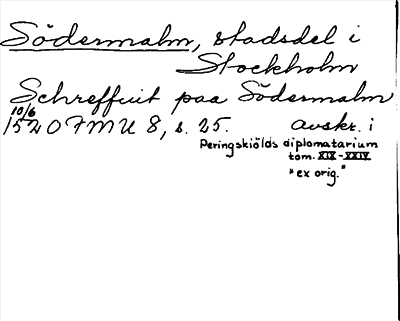 Södermalm, stadsdel i
Stockholm
Schreffuit paa Södermalm
10/6
1520 FMU 8, s. 25. avskr. i
Peringskiölds diplomatarium
tom. XIX-XXIV
"ex orig."